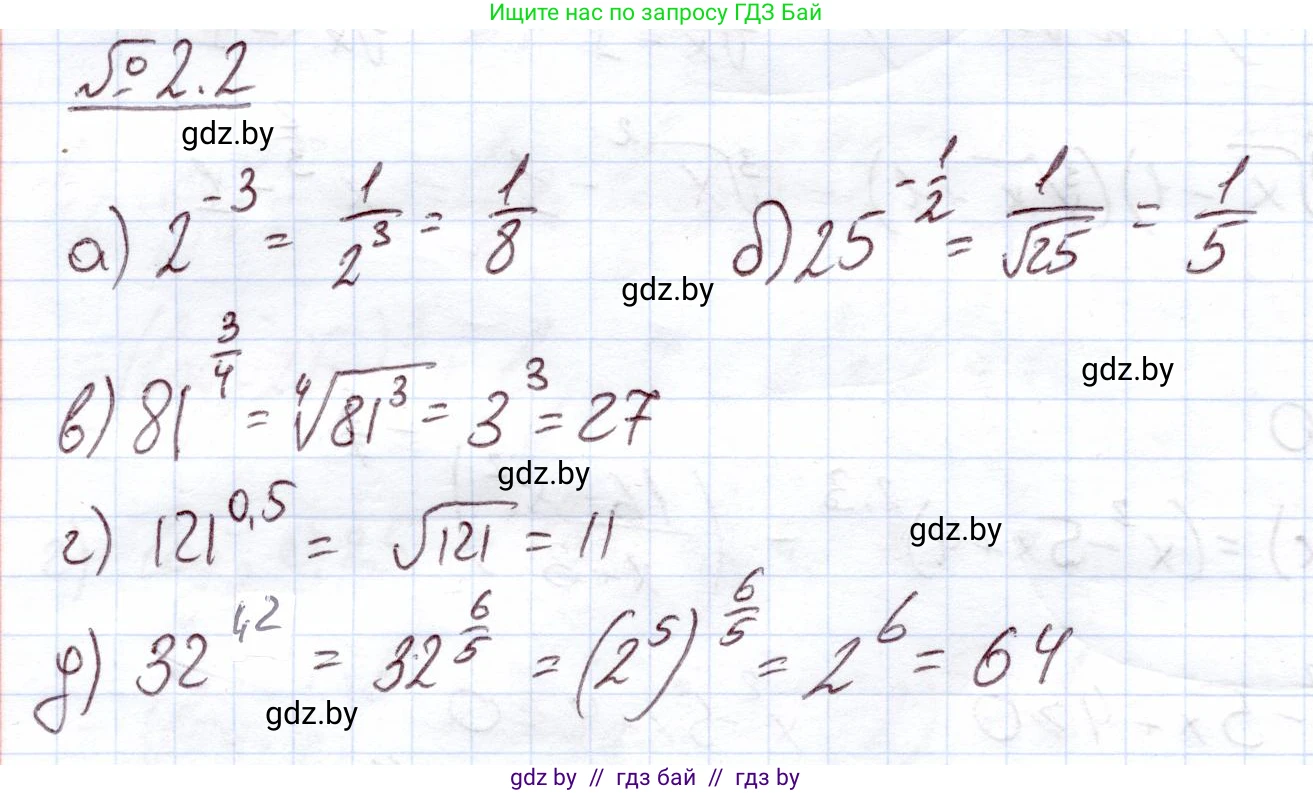 Ищите нас по запросу ГДЗ Бай
№ 2.2
gdz.by
а) 2^{-3} = \frac{1}{2^3} = \frac{1}{8} б) 25^{-\frac{1}{2}} = \frac{1}{\sqrt{25}} = \frac{1}{5}
gdz.by
gdz.by
в) 81^{\frac{3}{4}} = \sqrt[4]{81^3} = 3^3 = 27
gdz.by
г) 121^{0,5} = \sqrt{121} = 11
gdz.by
д) 32^{1,2} = 32^{\frac{6}{5}} = (2^5)^{\frac{6}{5}} = 2^6 = 64
gdz.by
gdz by // гдз бай // гдз by